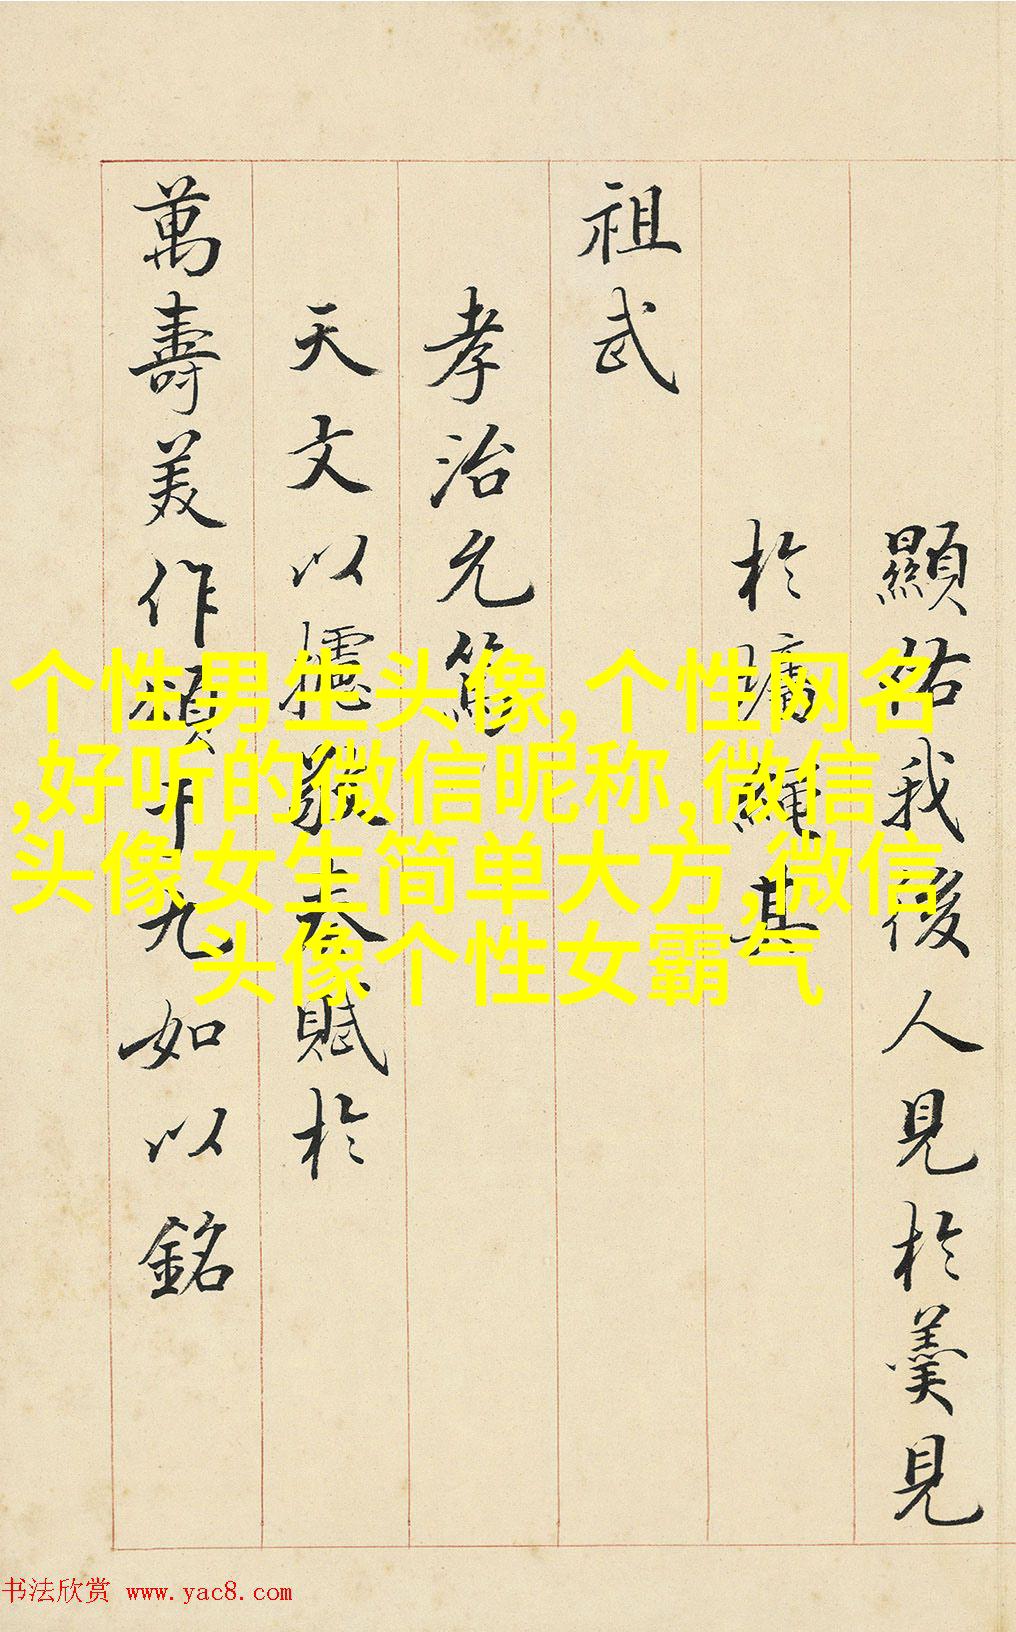 顯祐我後人見於羹見
於
基
祖武
孝治允篤
天文以攄敬奏賦於
萬壽美作頌十九如以銘
个性男生头像,个性网名
,好听的微信昵称,微信
头像女生简单大方,微信
头像个性女霸气
书法欣赏 www.yac8.com